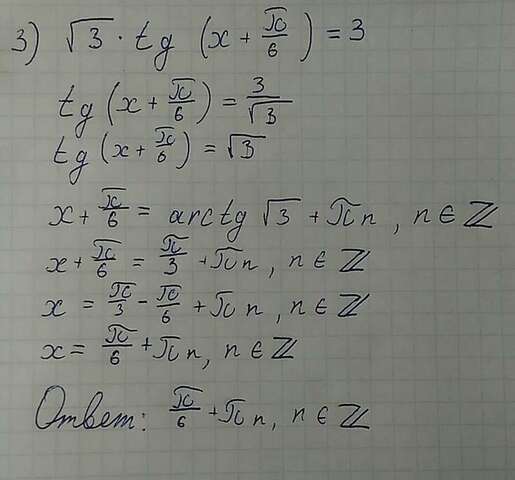 3) √3 · tg (x + π/6) = 3
tg (x + π/6) = 3/√3
tg (x + π/6) = √3
x + π/6 = arctg √3 + πn, n ∈ ℤ
x + π/6 = π/3 + πn, n ∈ ℤ
x = π/3 - π/6 + πn, n ∈ ℤ
x = π/6 + πn, n ∈ ℤ
Ответ: π/6 + πn, n ∈ ℤ